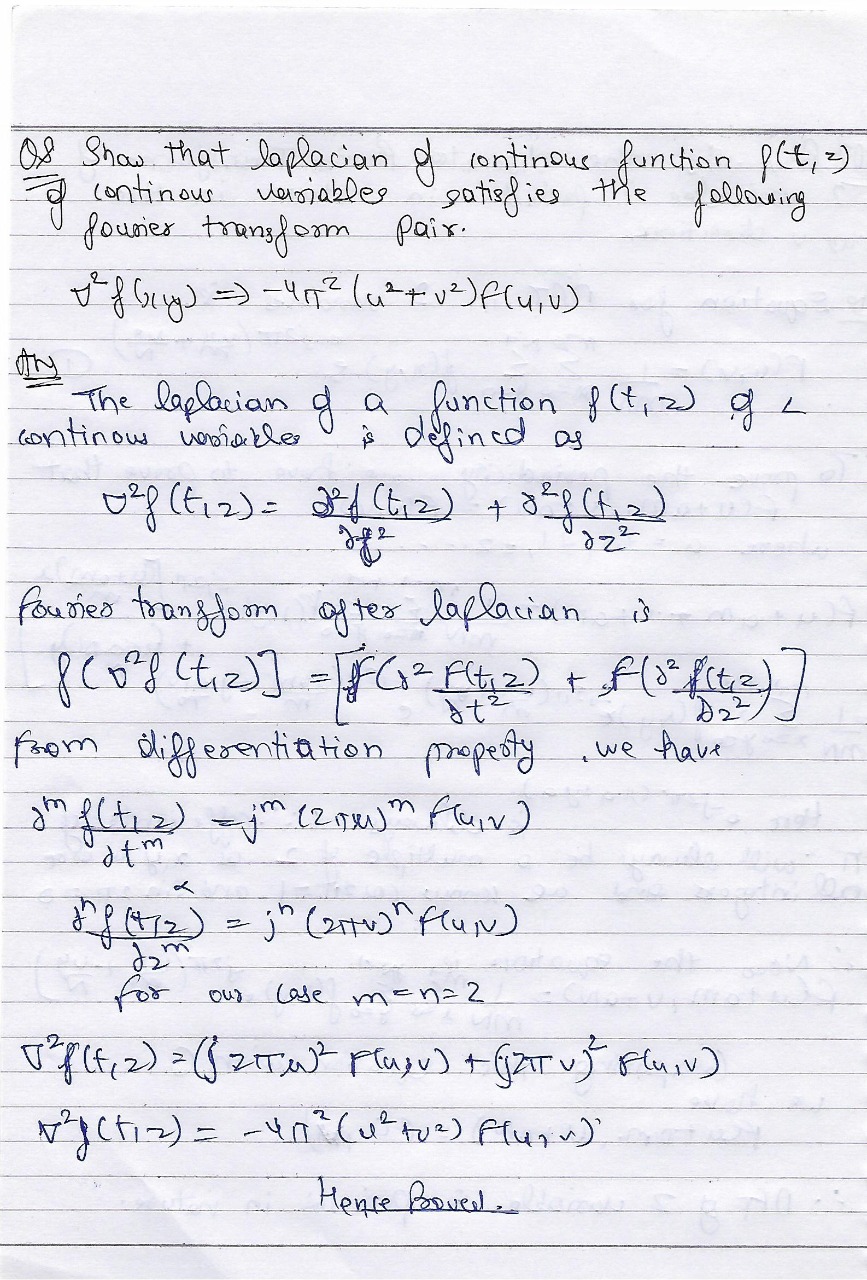 Q8 Show that laplacian of continous function f(t,z)
of continous variables satisfies the following
fourier transform pair.
∇²f(x,y) ⇒ -4π²(u²+v²)F(u,v)
Ans
The laplacian of a function f(t,z) of
continous variables is defined as
∇²f(t,z) = ∂²f(t,z)/∂t² + ∂²f(t,z)/∂z²
fourier transform after laplacian is
f(∇²f(t,z)] = [F(∂² F(t,z)/∂t² + F(∂² f(t,z)/∂z²)]
from differentiation property, we have
∂ᵐ f(t,z)/∂tᵐ = jᵐ (2πu)ᵐ F(u,v)
∂ⁿ f(t,z)/∂zᵐ = jⁿ (2πv)ⁿ F(u,v)
for our case m=n=2
∇²f(t,z) = (j2πu)² F(u,v) + (j2πv)² F(u,v)
∇²f(t,z) = -4π²(u²+v²) F(u,v)
Hence Proved.